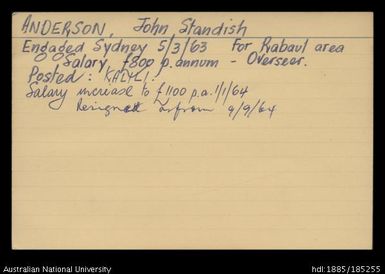 ANDERSON, John Standish
Engaged Sydney 5/3/63 For Rabaul area
Salary £800 p.annum - Overseer.
Posted: KALILI.
Salary increase to £1100 p.a. 1/1/64
Resigned as from 9/9/64
Australian National University
hdl:1885/185255